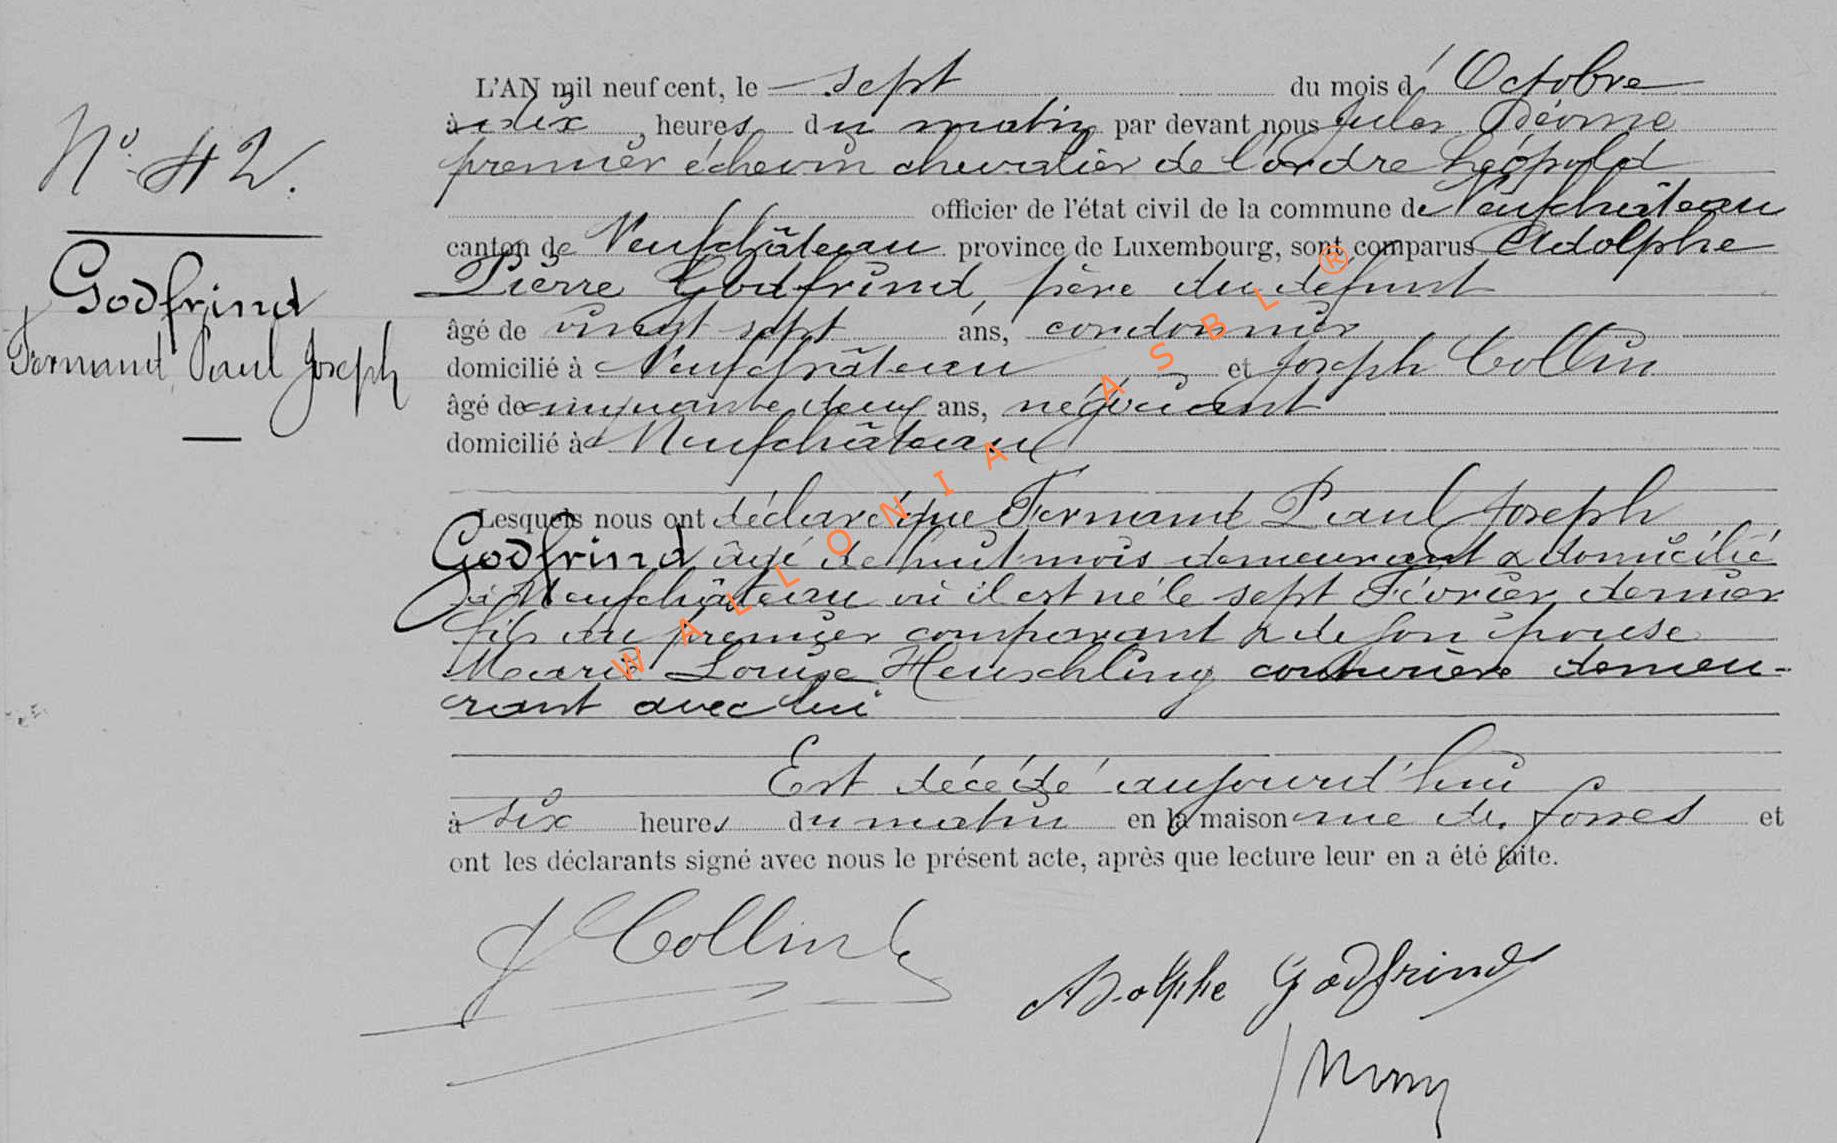 N° 42.
Godfrind
Fernand Paul Joseph
L'AN mil neuf cent, le sept du mois d'Octobre
à dix heures du matin par devant nous Jules
premier échevin chevalier de l'ordre Léopold
officier de l'état civil de la commune de Neufchâteau
canton de Neufchâteau province de Luxembourg, sont comparus Adolphe
Pierre Godfrind, père du défunt
âgé de vingt sept ans, cordonnier
domicilié à Neufchâteau et Joseph Collin
âgé de cinquante deux ans, négociant
domicilié à Neufchâteau
Lesquels nous ont déclaré que Fernand Paul Joseph
Godfrind âgé de huit mois demeurant & domicilié
à Neufchâteau où il est né le sept Février dernier
fils du premier comparant & de son épouse
Marie Louise Heuschling couturière demeu-
rant avec lui
Est décédé aujourd'hui
à six heures du matin en la maison rue des fosses et
ont les déclarants signé avec nous le présent acte, après que lecture leur en a été faite.
J Collin
Adolphe Godfrind
WALLONIA ASBL ®